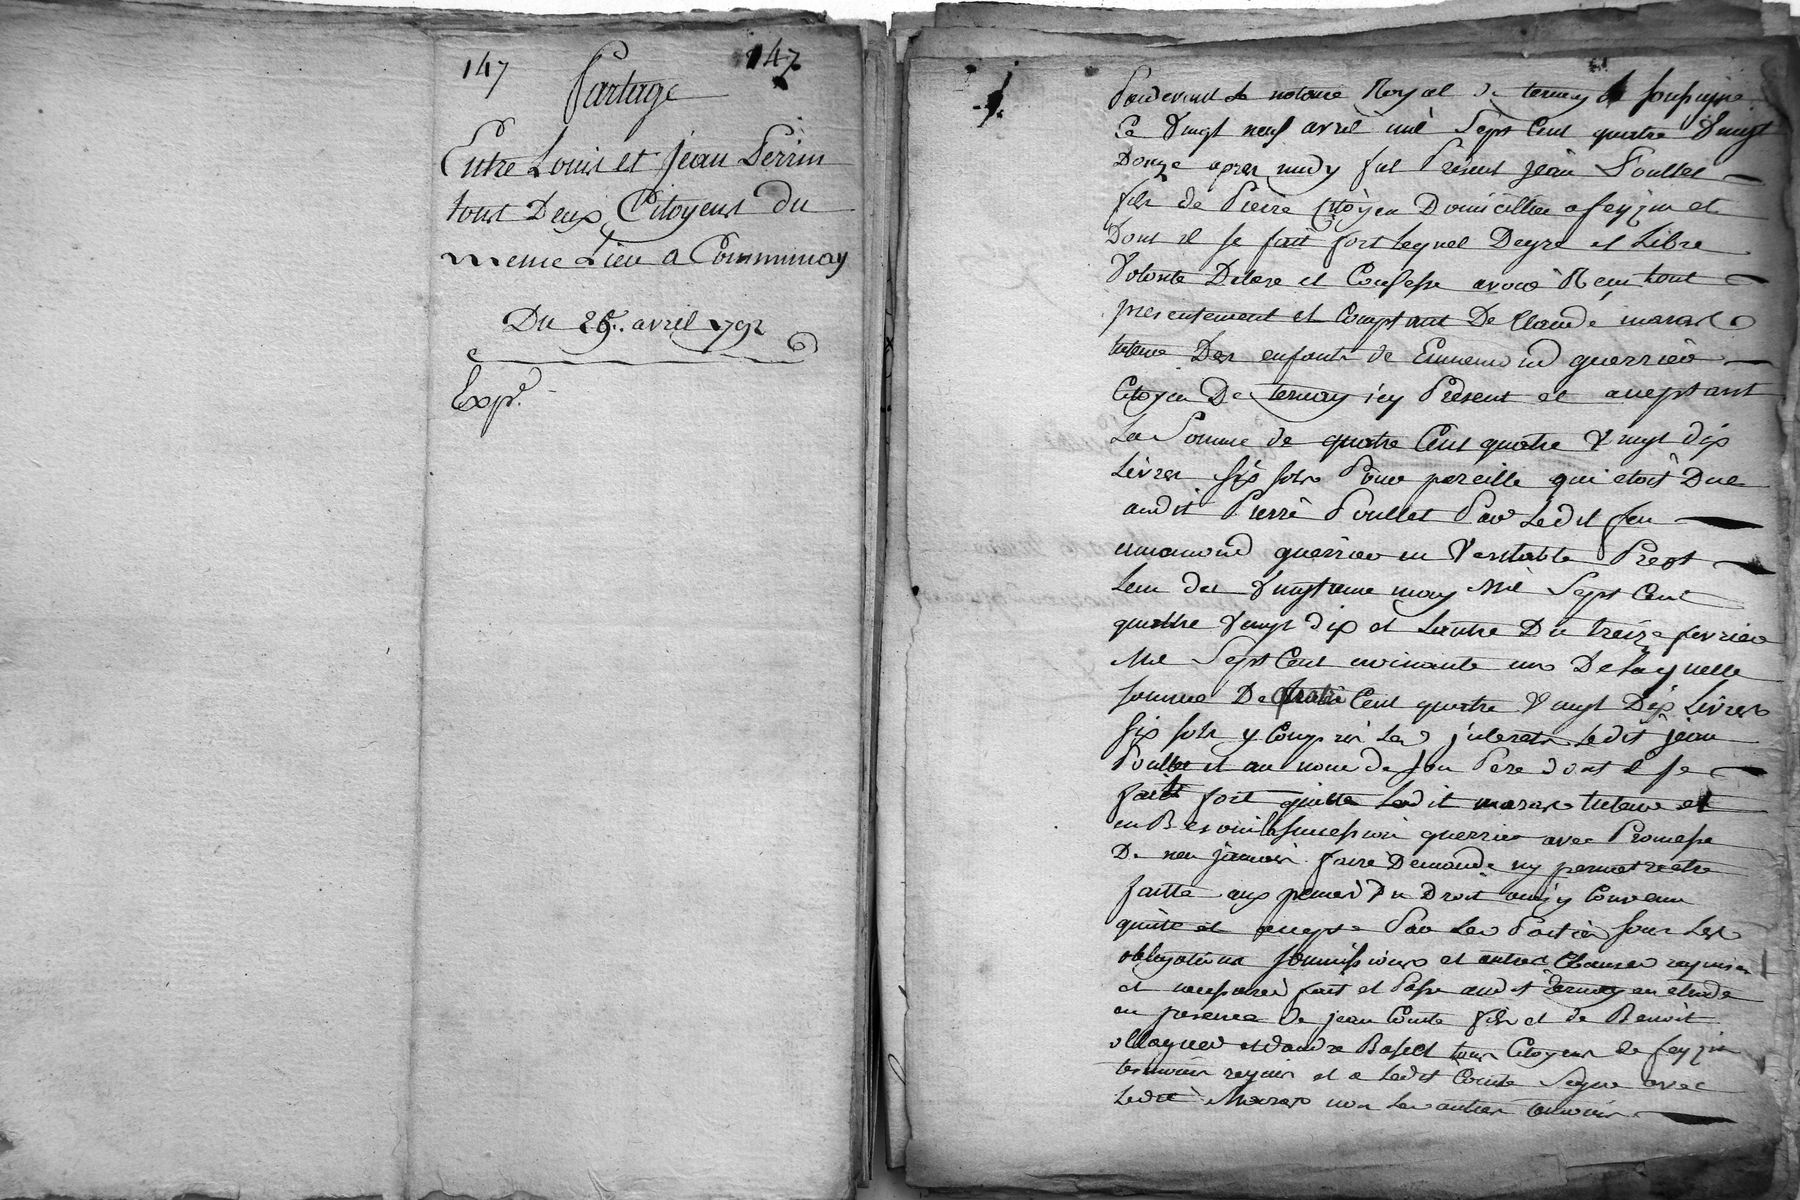 147
147
Partage
Entre Louis et jean Perrin
tous Deux Citoyens du
meme Lieu a Communay
Du 29. avril 1792
Expé.
Pardevant le notaire Royal de ternay soussigné
Ce vingt neuf avril mil Sept Cent quatre vingt
Douze apres midy fut Présent jean Poullet
fils de Pierre Citoyen Domicillié a feyzin et
Dont il se fait fort lequel Degré et Libre
Volonté Declare et Confesse avoir Reçu tout
presentement et Comptant De Claude maras
tuteur Des enfants de Ennemond guerrier
Citoyen De ternay icy Présent et aceptant
La Somme de quatre Cent quatre Vingt dix
Livres six sols Pour pareille qui etoit Due
audit Pierre Poullet Par Ledit feu
ennemond guerrier en Veritable Prest
Lun du Vingtieme may Mil Sept Cent
quattre Vingt dix et Lautre Du treize fevrier
Mil Sept Cent un De laquelle
somme De quatre Cent quatre Vingt Dix Livres
six sols y Compris Les interets Ledit jean
Poullet et au nom de son Pere dont il se
fait fort quitte Ledit maras tuteur et
guerrier avec Promesse
De nen jamais faire Demande ny permettre etre
faitte aux peines Du Droit ainsy Convenu
quitté et accepté Par Les Parties sous Les
obligations soumissions et autres Clauses requises
et necessaires fait et Passé audit ternay en etude
en presence de jean Comte fils et de Benoit
tous Citoyens de feyzin
temoins requis et a Ledit Comte Signé avec
Ledit Maras non Les autres temoins